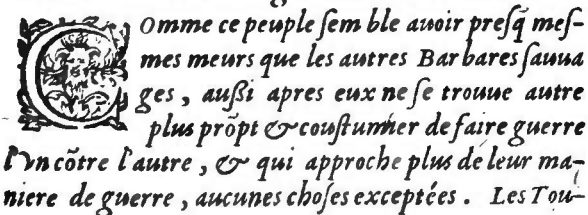 Omme ce peuple ſem ble auoir preſq̃ meſ-
mes meurs que les autres Barbares ſauua
ges, außi apres eux ne ſe trouue autre
plus prõpt & couſtumier de faire guerre
l'vn cõtre l'autre, & qui approche plus de leur ma-
niere de guerre, aucunes choſes exceptées. Les Tou-